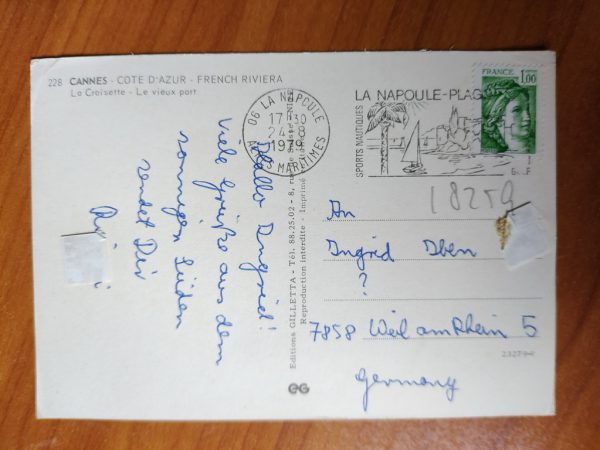 228 CANNES - COTE D'AZUR - FRENCH RIVIERA
La Croisette - Le vieux port
06 LA NAPOULE
17-30
24-8
1979
ALPES MARITIMES
SPORTS NAUTIQUES
LA NAPOULE-PLAG
FRANCE
1,00
18259
Hallo Ingrid!
Viele Grüße aus dem
sonnigen Süden
sendet Dir
Editions GILLETTA - Tél. 88.25.02 - 8, rue
Reproduction interdite - Imprimé
An
Ingrid Iben
?
7858 Weil am Rhein 5
Germany